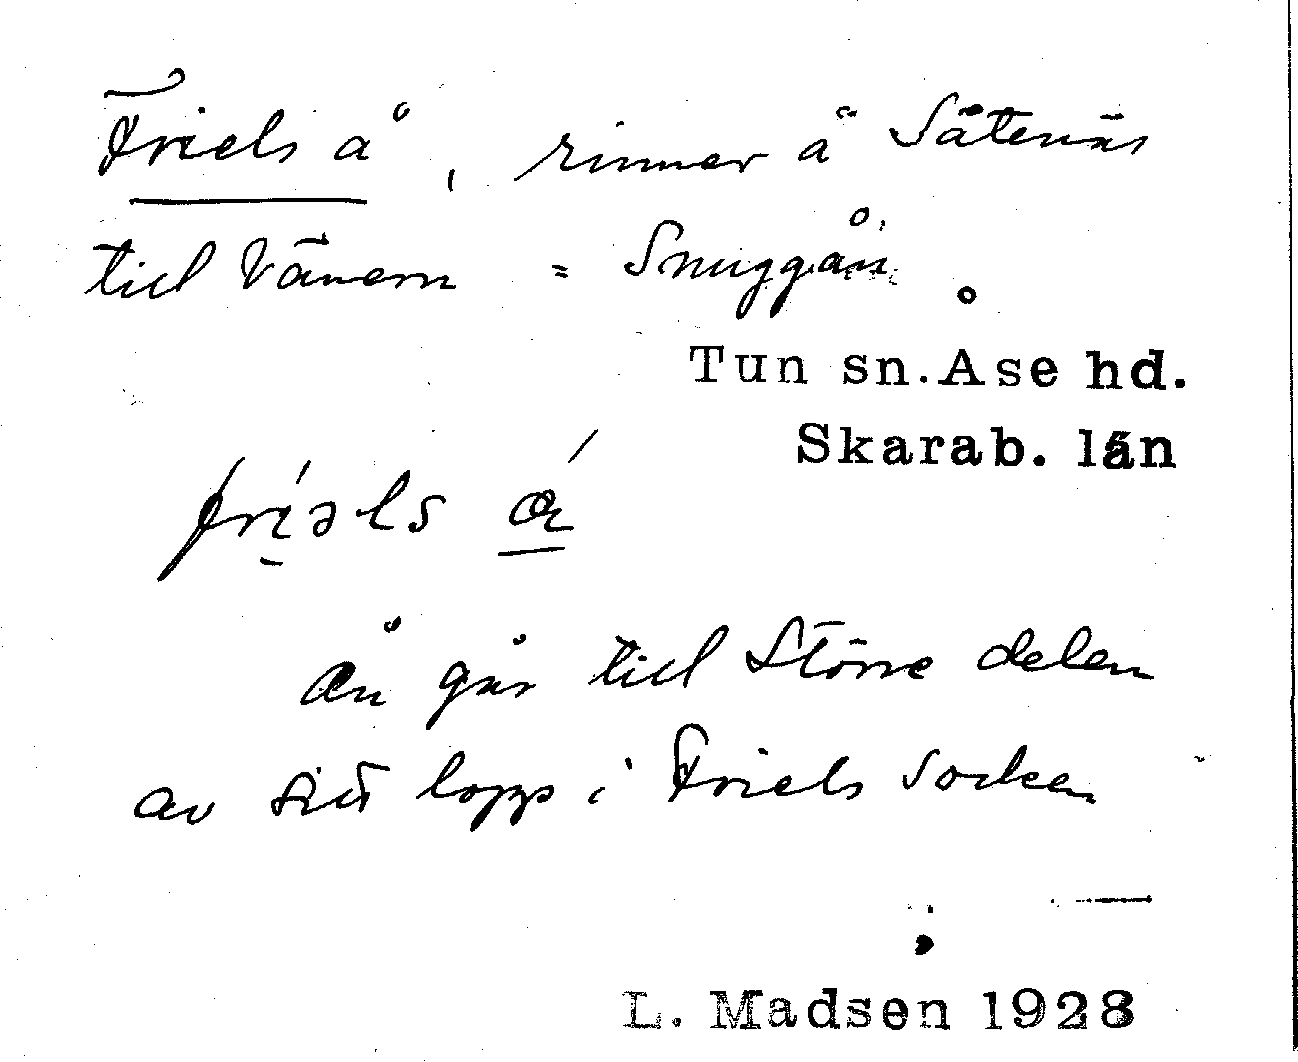 Friels å, rinner å Såtenäs
till Vänern = Snuggån
Tun sn. Åse hd.
Skarab. län
friəls å
ån går till större delen
av sitt lopp i Friels socken
L. Madsen 1928